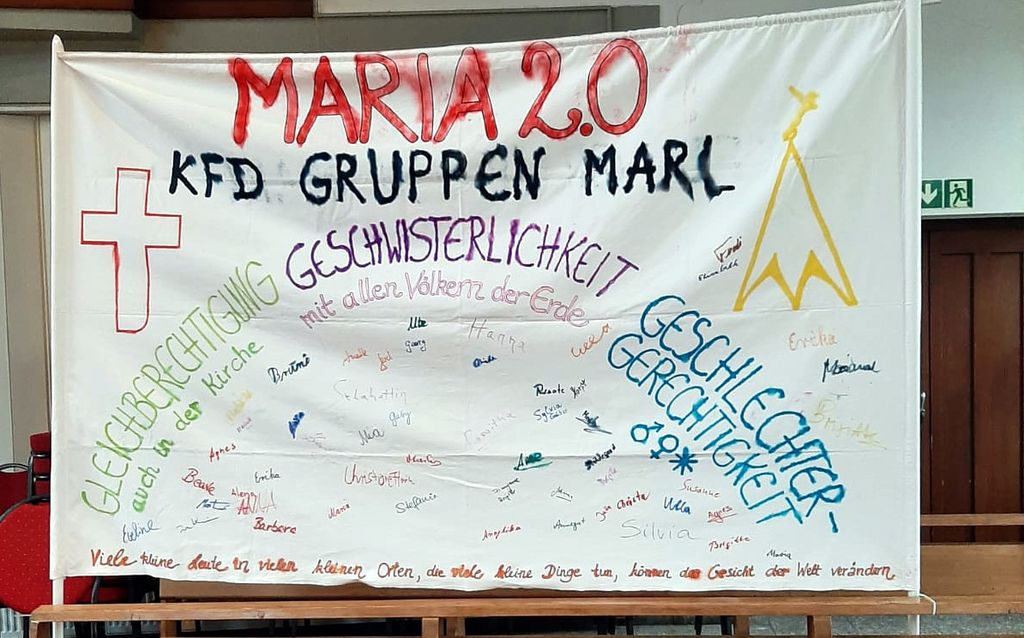 MARIA 2.0
KFD GRUPPEN MARL
GESCHWISTERLICHKEIT
mit allen Völkern der Erde
GLEICHBERECHTIGUNG
auch in der Kirche
GESCHLECHTER-
GERECHTIGKEIT
♂♀*
Ulla
Hanna
Georg
Erika
Marianne
Renate
Sylvia
Gaby
Agnes
Beate
Erika
Stefanie
Maria
ANNA
Barbara
Eveline
Anne
Christa
Susanne
Ulla
Agnes
Silvia
Angelika
Annegret
Brigitte
Maria
Viele kleine Leute in vielen kleinen Orten, die viele kleine Dinge tun, können das Gesicht der Welt verändern